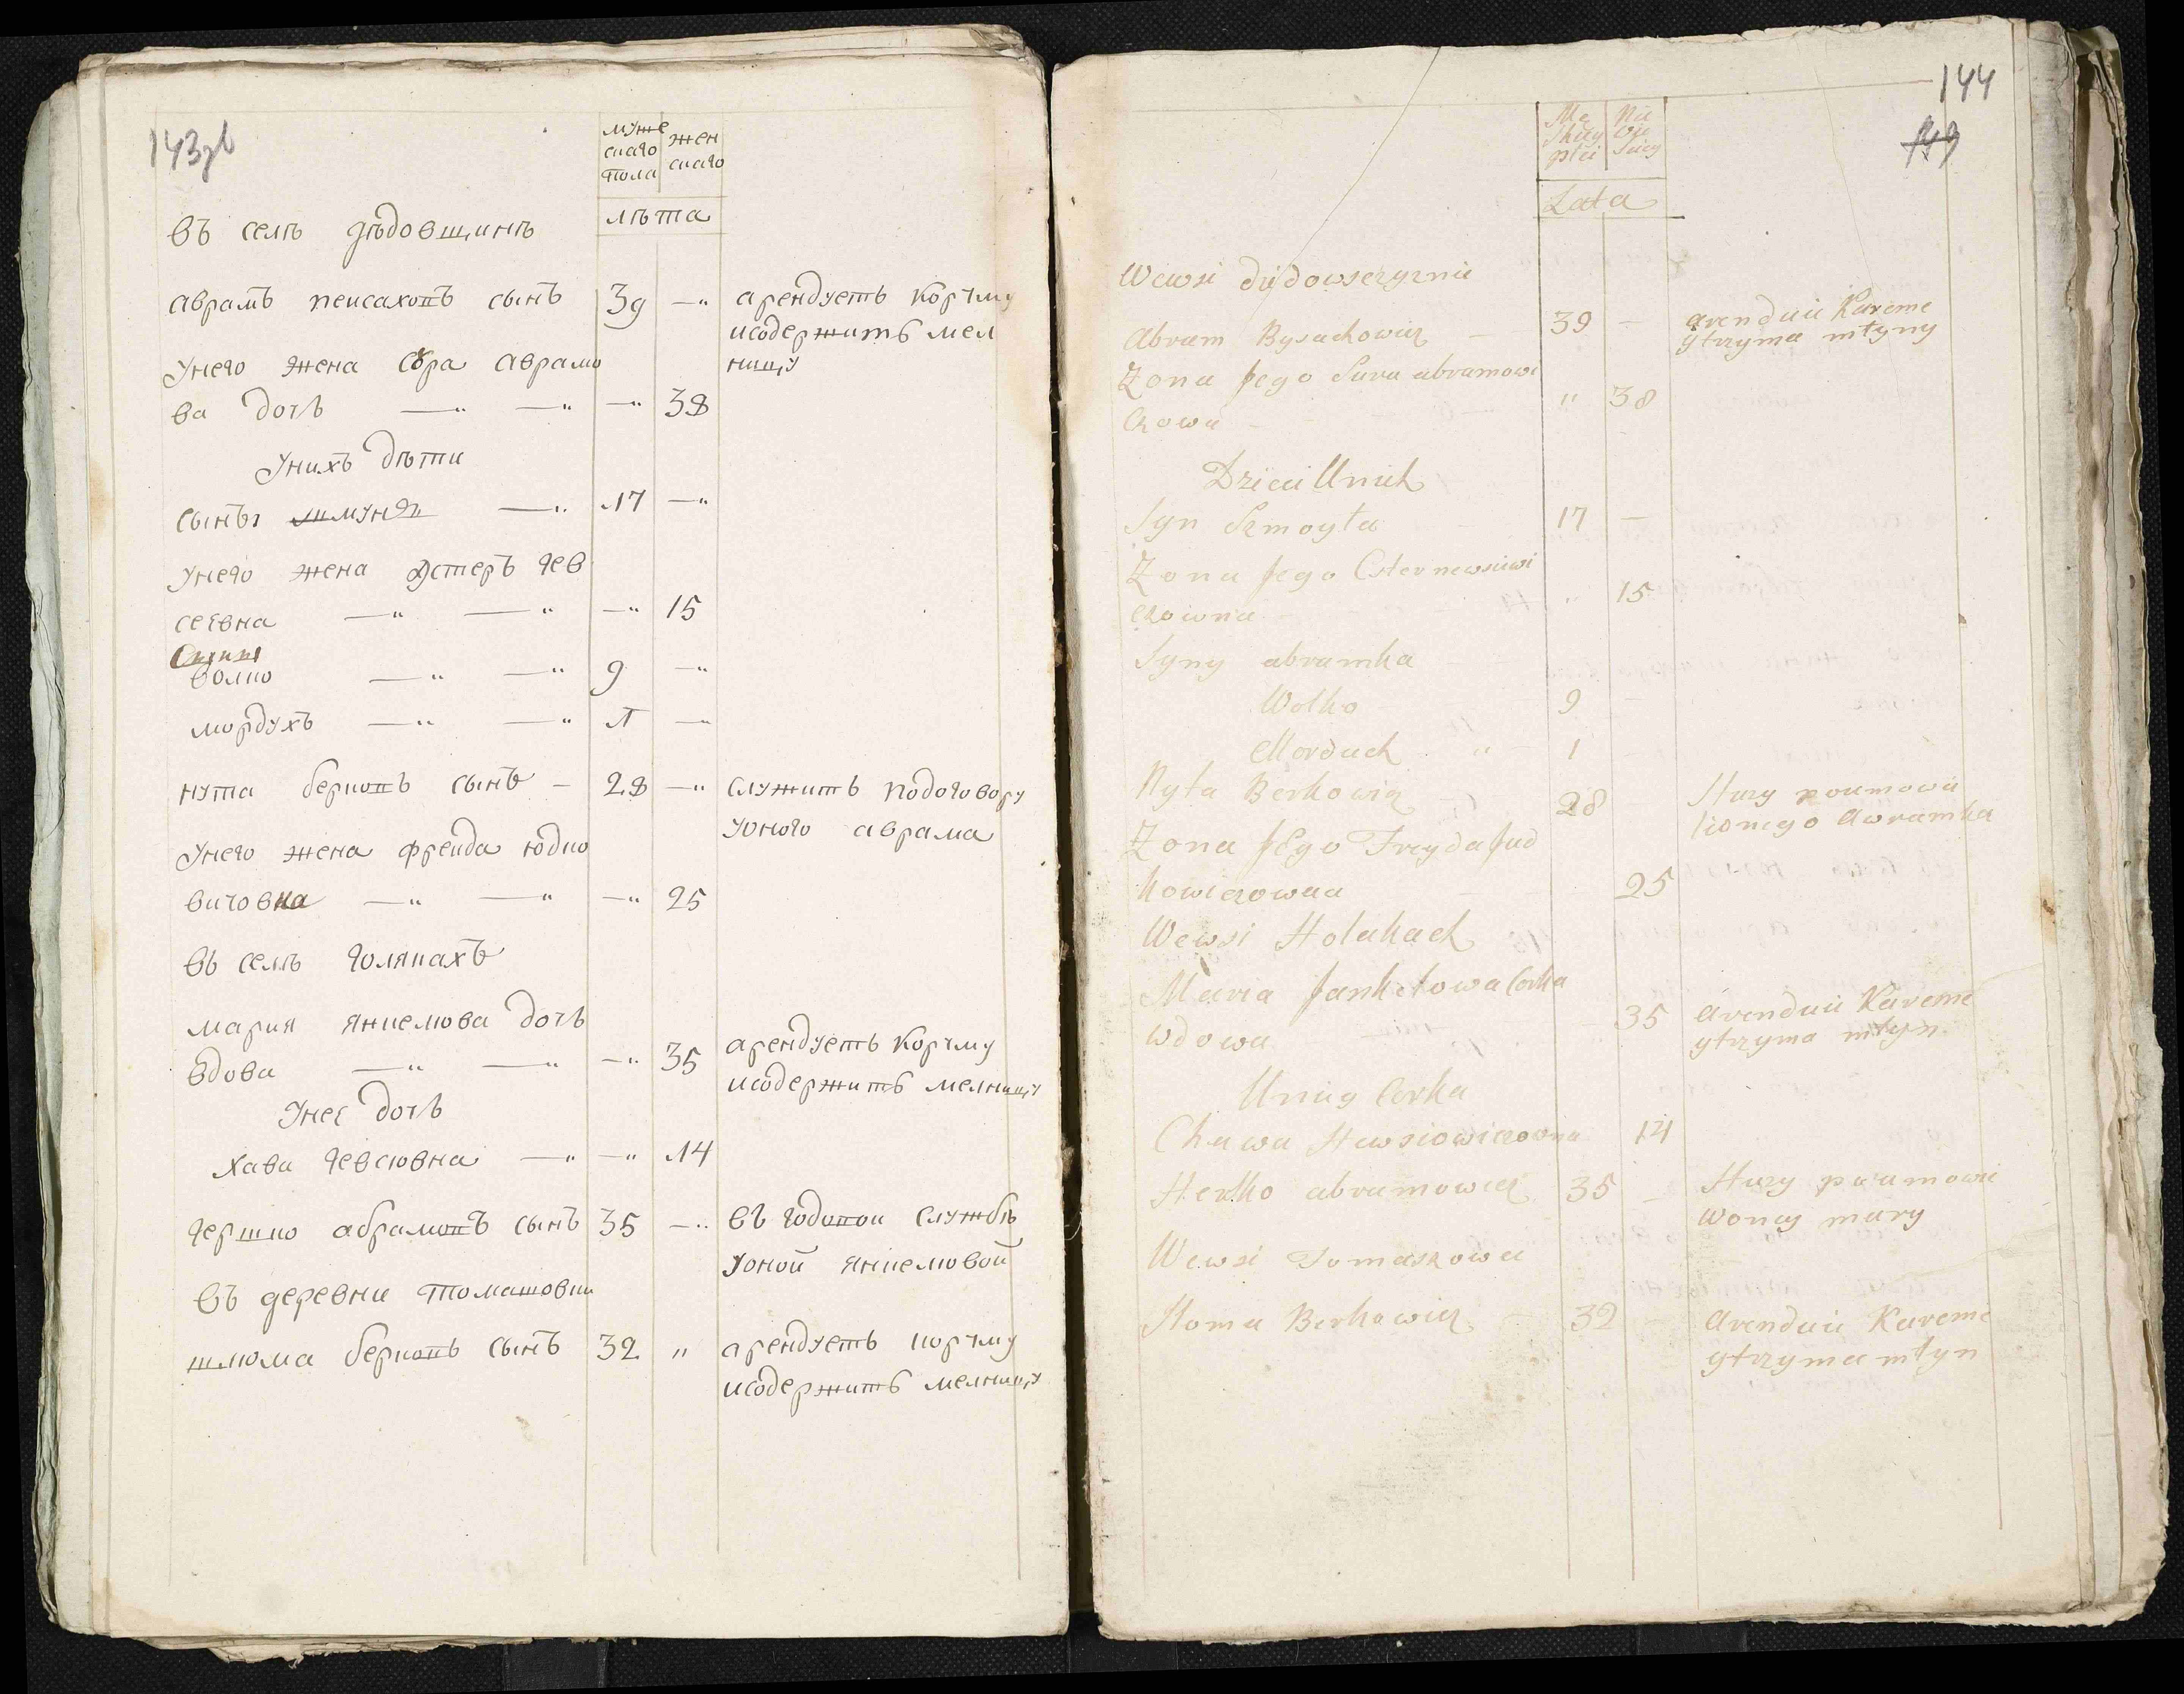 143зв
муже
скаго
пола
жен
скаго
лѣта
въ селѣ дѣдовщинѣ
аврамъ пейсаховъ сынъ 39 —„ арендуетъ корчму
исодержитъ мел
ницу
Унего жена Сора аврамо
ва дочь —„ —„ —„ 38
Унихъ дѣти
сынъ шмуйла —„ 17 —„
Унего жена Эстеръ гев
сеевна —„ —„ —„ 15
Сыны
волко —„ —„ 9 —„
мордухъ —„ —„ 1 —„
нута берковъ сынъ — 28 —„ служитъ подоговору
уоного аврама
Унего жена фрейда юдко
вичовна —„ —„ —„ 25
въ селѣ голякахъ
мария янкелюва дочь
вдова —„ —„ —„ 35 арендуетъ корчму
исодержитъ мелницу
Унее дочь
хава гевсювна —„ —„ 14
гершко абрамовъ сынъ 35 —„ въ годовои службѣ
уоной янкелювой
въ деревни томашовки
шлюма берковъ сынъ 32 „ арендуетъ корчму
исодержитъ мелницу
144
149
Mę
skiey
płci
Nie
wie
sciey
Lata
Wewsi didowszczyznie
Abram Bysachowicz — 39 — arenduie Karcme
ytrzyma młyny
Zona Jego Sura abramowi
czowa — „ 38
Dzieci Unich
Syn Szmoyła 17 —
Zona Jego Ester newsiewi
czowna — „ 15
Syny abramka
Wolko 9 —
Morduch „ 1
Nyta Berkowicz 28 Słuzy poumowie
Uonego Awramka
Zona JEgo Freyda Jud
kowiczowna 25
Wewsi Holakach
Maria Jankelowa Corka
wdowa — 35 Arenduie Karcme
ytrzyma młyn
Uniey Corka
Chawa Hewsiowiczowna 14
Herszko abramowicz 35 — Słuzy poumowie
Uoney mary
Wewsi Tomaszowce
Sloma Berkowicz 32 — Arenduie Karcme
ytrzyma młyn